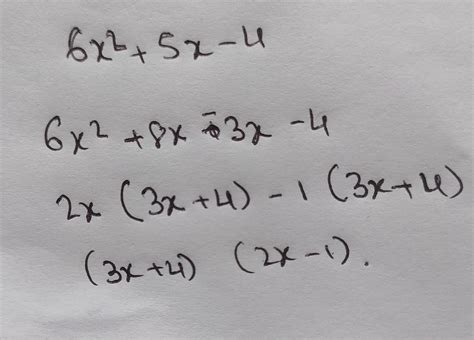 6x² + 5x - 4
6x² + 8x - 3x - 4
2x (3x + 4) - 1 (3x + 4)
(3x + 4) (2x - 1).